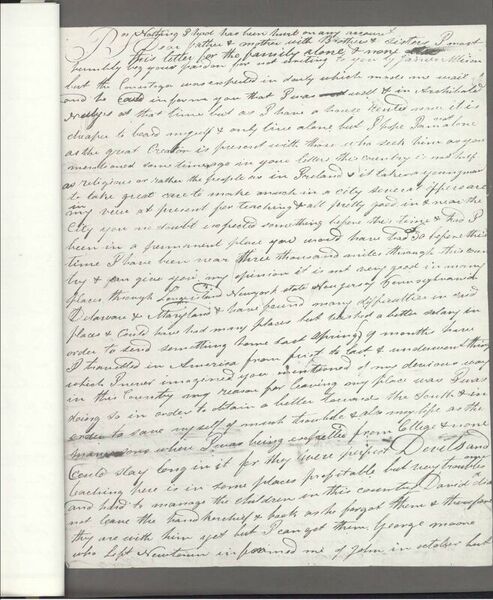 Nothing I hope has been hurt on any account
Dear father & mother with Brother & Sisters I must
this letter for the family alone & none
humbly beg your pardon for not writing to you by James
but the Courtesys was expected in daily which made me wait
and to inform you that I was well & in Archibald
at that time but as I have a house Rented since it is
cheaper to board myself & only live alone but I hope I am not alone
as the great Creator is present with those who seek him as you
mentioned some time ago in your letters this country is not half
as religious or rather the people as in Ireland & it takes a young man
to take great care to make in a city several offices are
in my view at present for teaching & all pretty good in & near the
City you no doubt expected something before this time & had I
been in a permanent place you would have had 30 before this
time I have been near three thousand miles through this coun
try & can give you my opinion it is not very good in many
places through Long island Newyork state New jersey Pennsylvania
Delaware & Maryland & have found many difficulties in said
places & Could have had many places but wished a better salary in
order to send something home last Spring 9 months have
I travelled in America from first to last & underwent things
which I never imagined you mentioned of my devious way
in this Country my reason for leaving my place was I was
doing so in order to obtain a better towards the South & in
order to save myself of much trouble & also my life as the
where I was being expelled from College & none
Could stay long in it for they were perfect Devils and
teaching here is in some places profitable but very troublesome
and hard to manage the children in this country David did
not leave the handkerchief & book as he forgot them & therefore
they are with him yet but I can get them George moore
who left Newtown informed me of John in october last